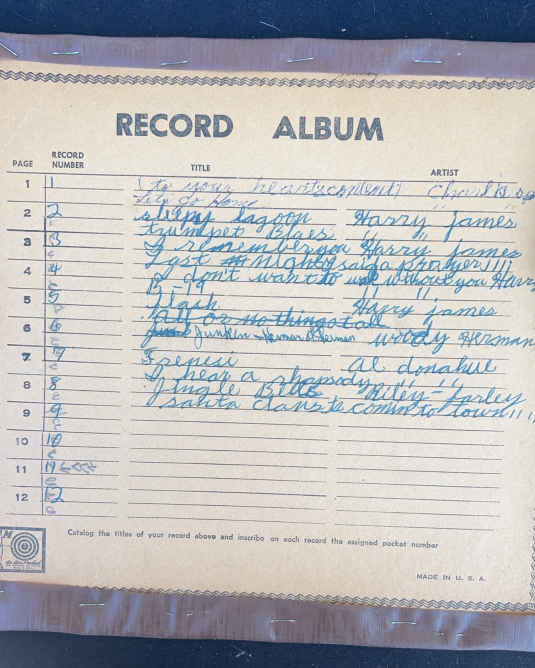 RECORD ALBUM
PAGE RECORD NUMBER TITLE ARTIST
1 1 (to your hearts content) Charlie
Lets Go Home " "
2 2 sleepy lagoon Harry james
c trumpet Blues " "
3 3 I remember you Harry james
c Last night said a prayer " "
4 4 I don't want to walk without you Harry
c B-19 " "
5 5 Flash Harry james
c All or nothing at all
6 6 Junkin Herman & Herman woody Herman
c
7 7 Frenesi al donahue
c I hear a rhapsody " "
8 8 Jingle Bells Riley-Farley
c santa claus is comin to town " "
9 9
c
10 10
c
11 11
c
12 12
c
Catalog the titles of your record above and inscribe on each record the assigned pocket number
MADE IN U. S. A.